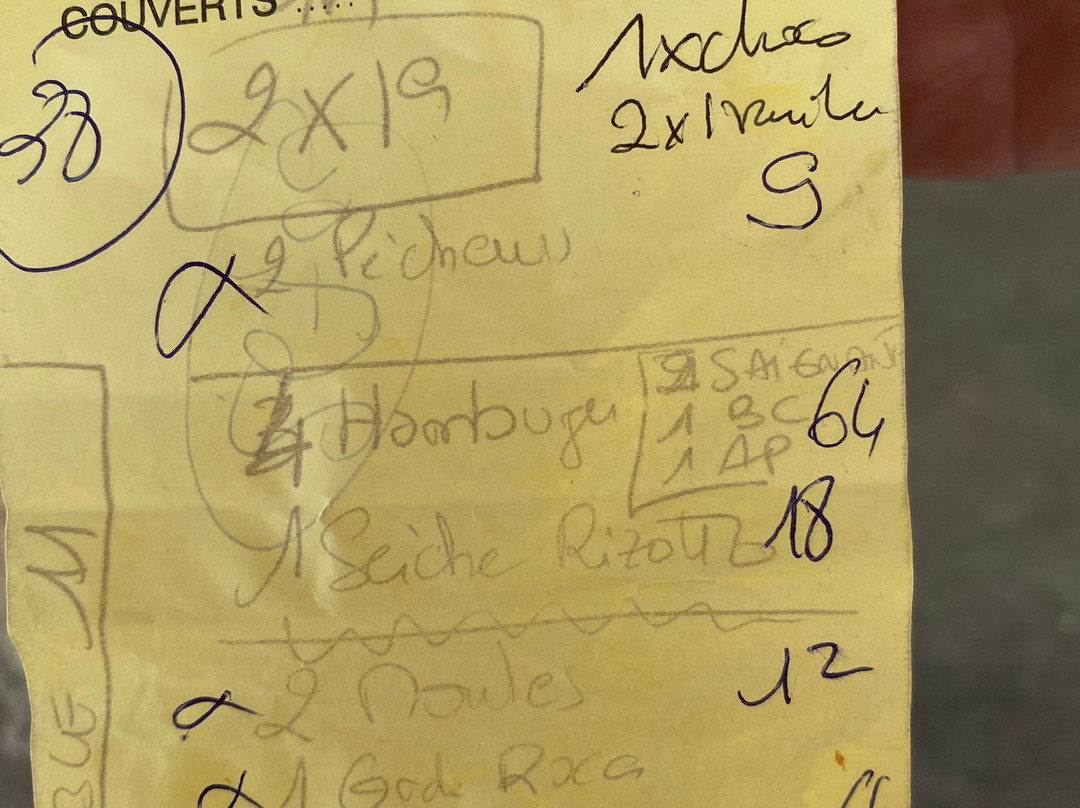 COUVERTS .....
38
2 x 19
1x choco
2x1 Vanille
9
2 Pêcheurs
4 Hamburger
2 SAIGNANT
1 BC
1 AP
64
1 Seiche Rizotto 18
2 Moules 12
1 Gode Roca